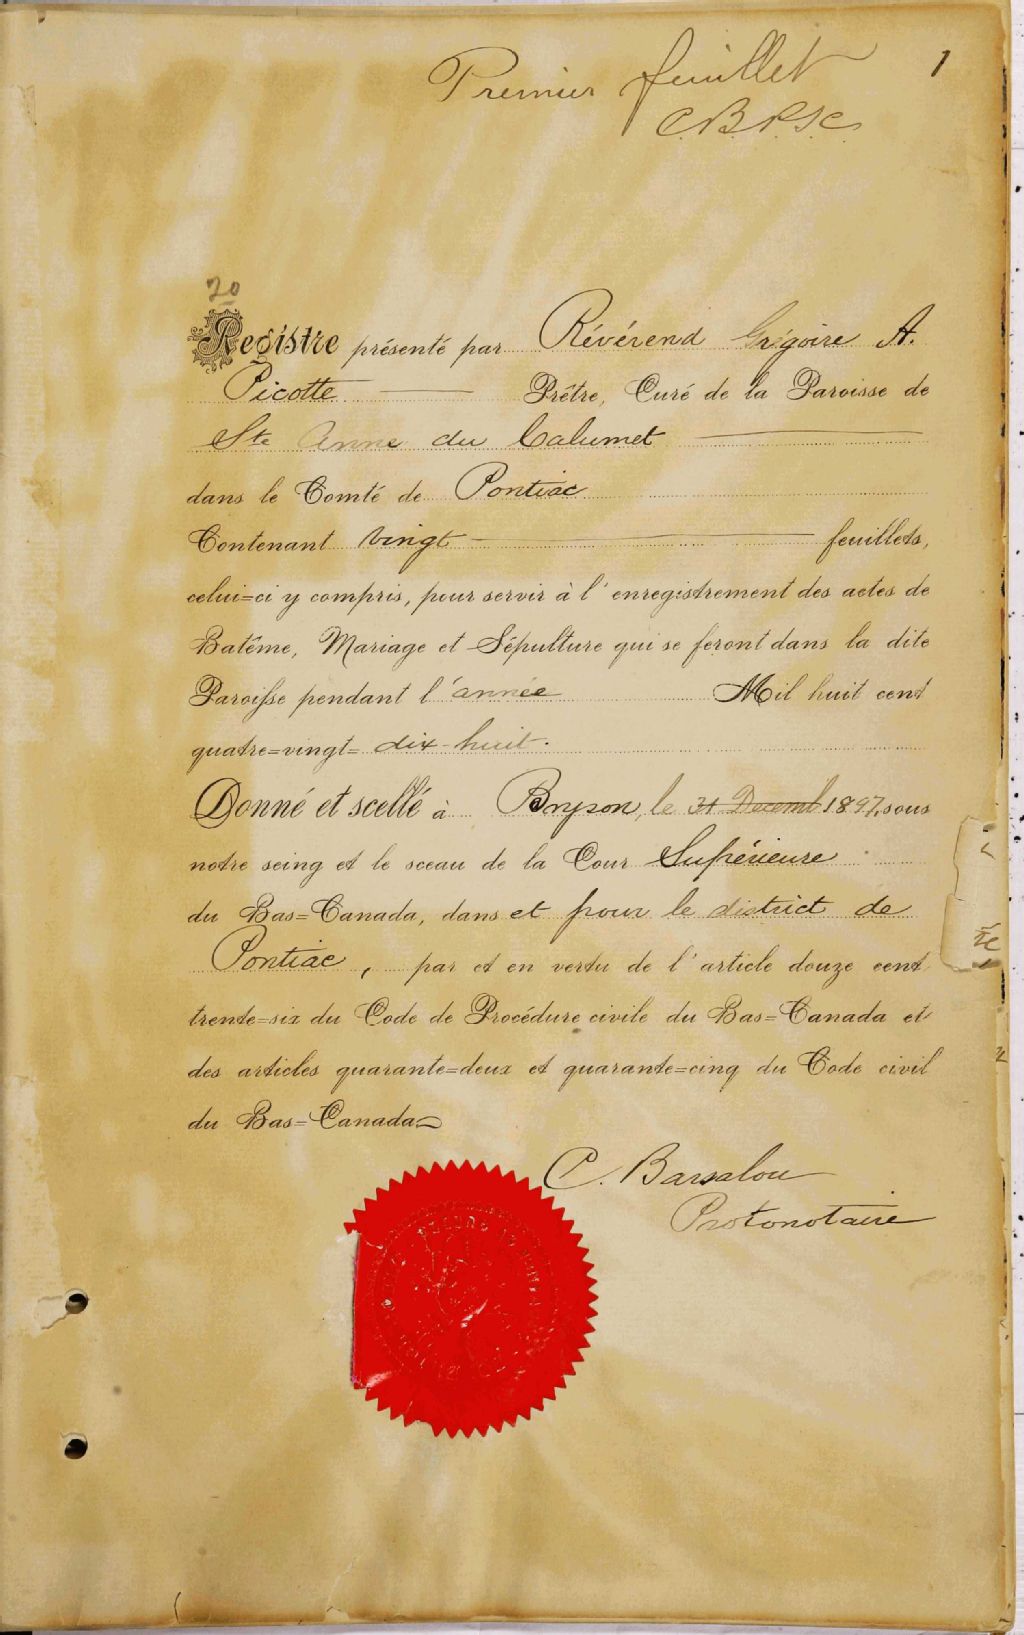 Premier feuillet 1
C.B.P.S.C.
20
Registre présenté par Révérend Grégoire A.
Picotte Prêtre, Curé de la Paroisse de
Ste Anne du Calumet
dans le Comté de Pontiac
Contenant vingt feuillets,
celui=ci y compris, pour servir à l'enregistrement des actes de
Batême, Mariage et Sépulture qui se feront dans la dite
Paroisse pendant l'année Mil huit cent
quatre=vingt= dix-huit.
Donné et scellé à Bryson, le 31 Decemb 1897, sous
notre seing et le sceau de la Cour Supérieure
du Bas=Canada, dans et pour le district de
Pontiac, par et en vertu de l'article douze cent
trente=six du Code de Procédure civile du Bas=Canada et
des articles quarante=deux et quarante=cinq du Code civil
du Bas=Canada
C. Barsalou
Protonotaire